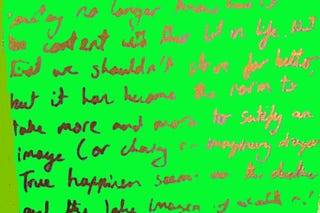 no longer know how to
be content with their lot in life. Not
that we shouldn't strive for better,
but it has become the norm to
take more and more to satisfy an
image (or chasing an imaginary
True happiness seems on the decline
and the false images of wealth